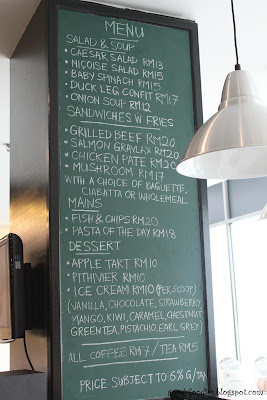 MENU
SALAD & SOUP
• CAESAR SALAD RM13
• NIÇOISE SALAD RM15
• BABY SPINACH RM15
• DUCK LEG CONFIT RM17
• ONION SOUP RM12
SANDWICHES W FRIES
• GRILLED BEEF RM20
• SALMON GRAVLAX RM20
• CHICKEN PATE RM20
• MUSHROOM RM17
WITH A CHOICE OF BAGUETTE,
CIABATTA OR WHOLEMEAL
MAINS
• FISH & CHIPS RM20
• PASTA OF THE DAY RM18
DESSERT
• APPLE TART RM10
• PITHIVIER RM10
• ICE CREAM RM10 (PER SCOOP)
(VANILLA, CHOCOLATE, STRAWBERRY
MANGO, KIWI, CARAMEL, CHESTNUT
GREEN TEA, PISTACHIO, EARL GREY)
ALL COFFEE RM7 / TEA RM5
PRICE SUBJECT TO 6% G/TAX